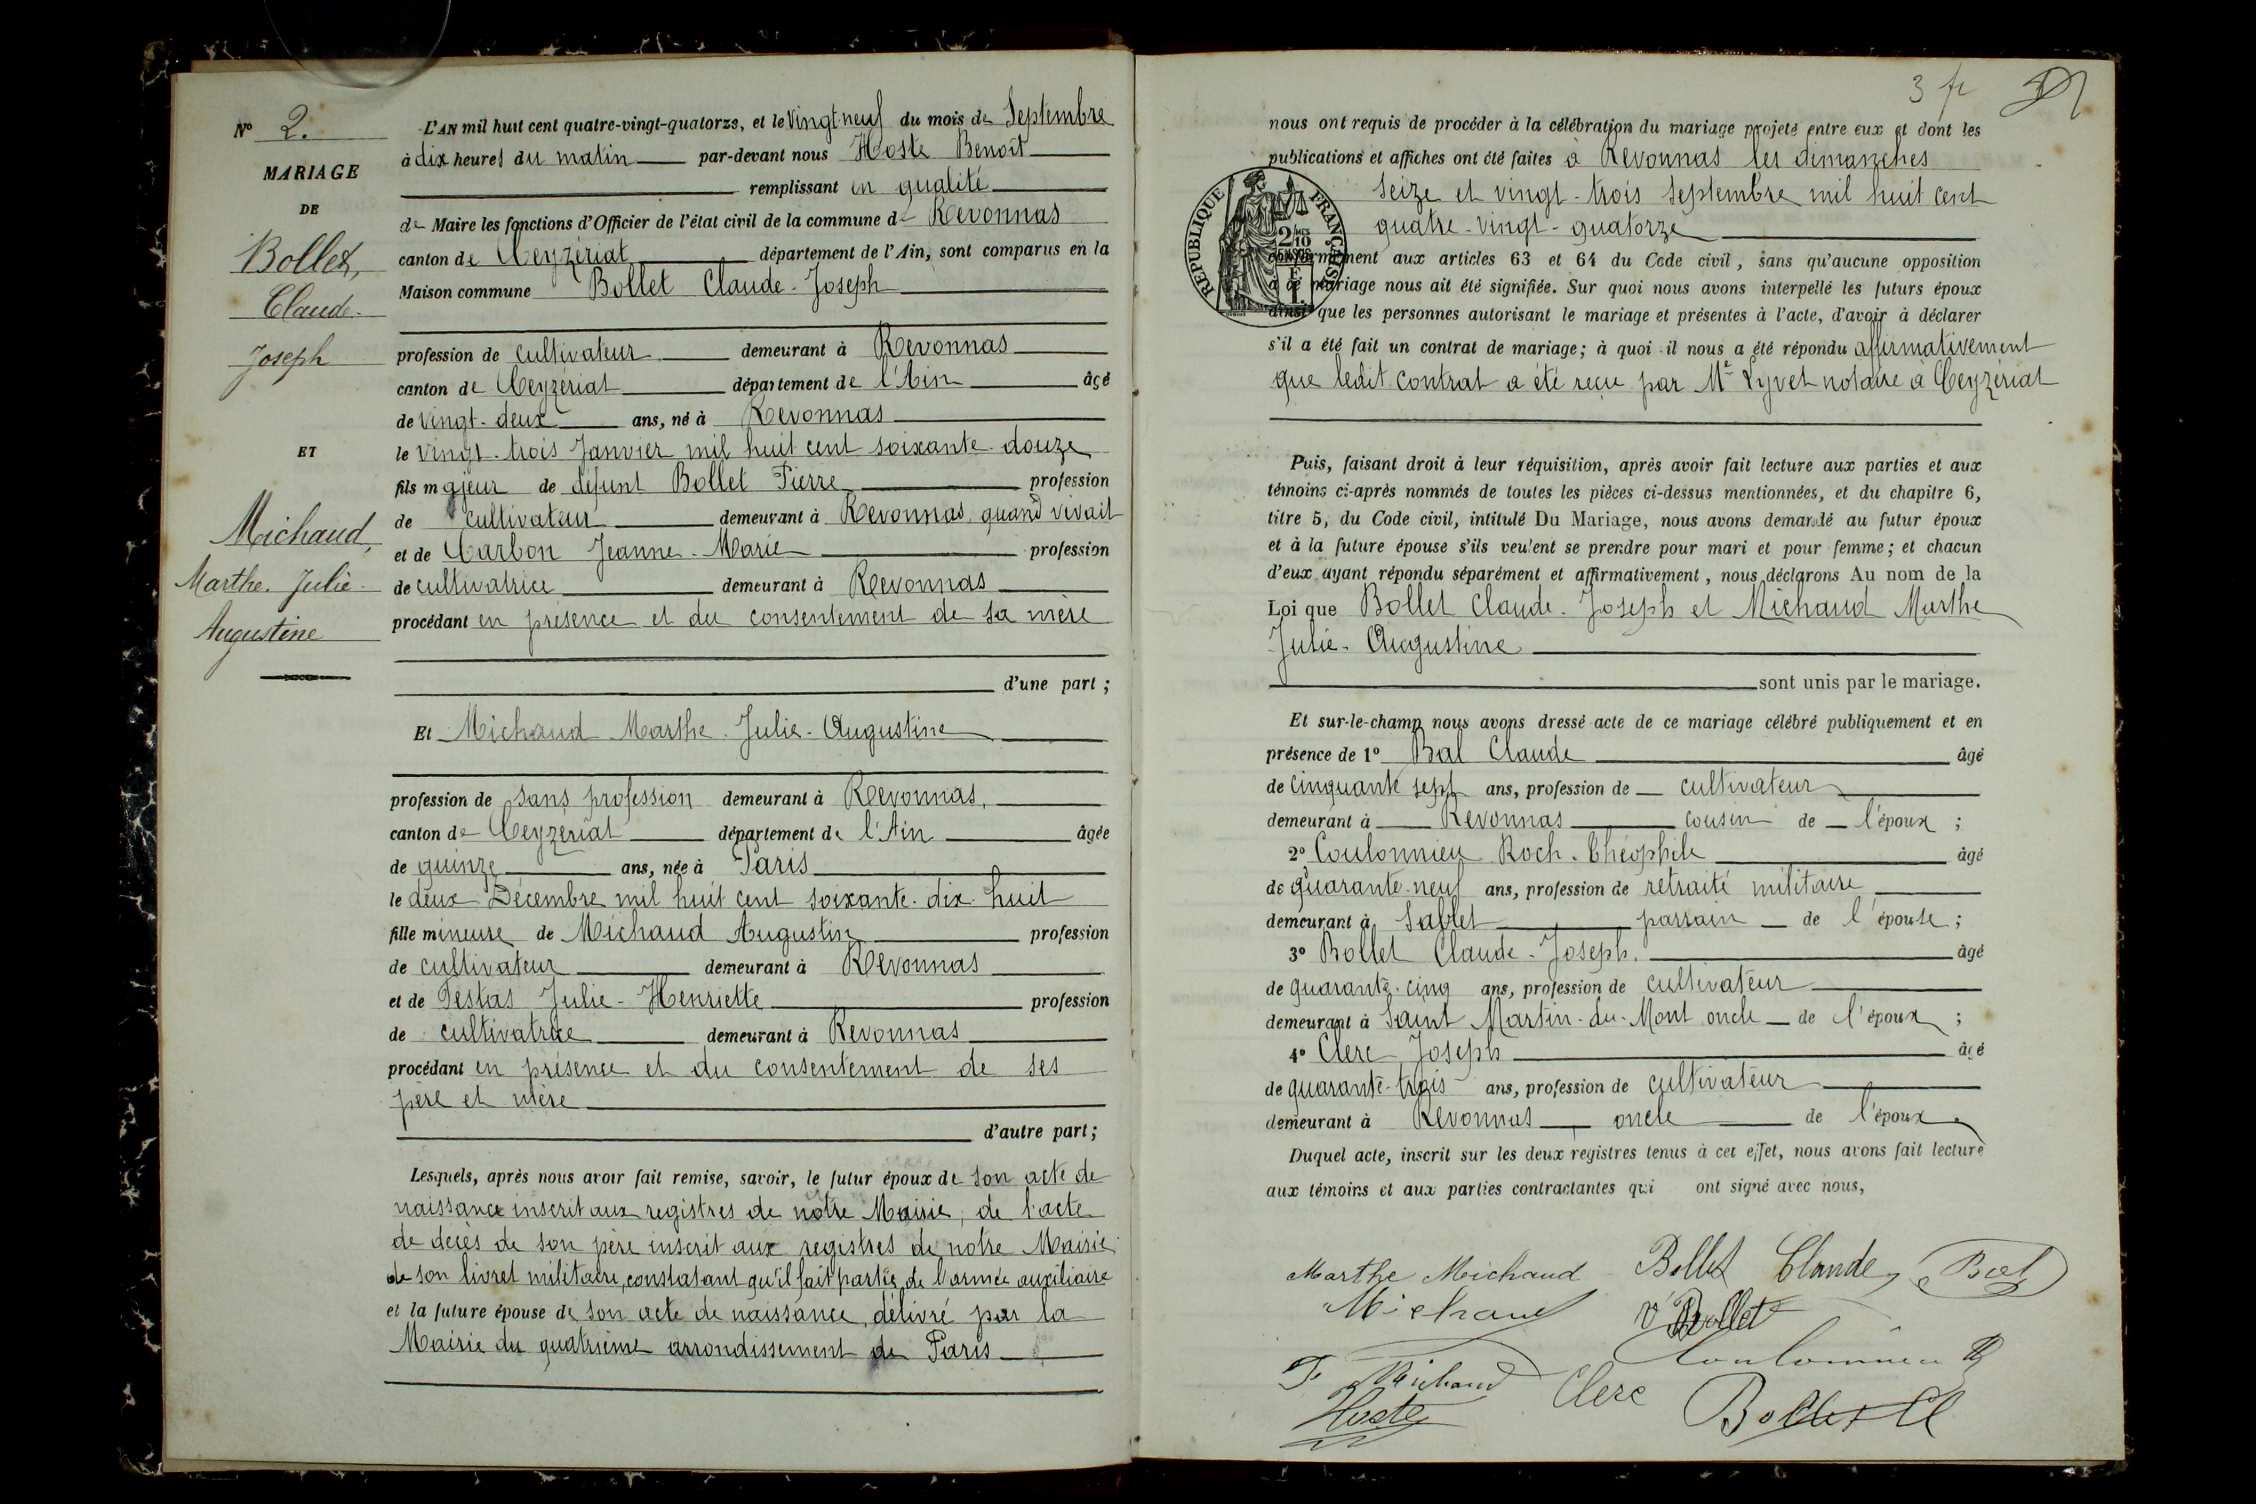 N° 2.
MARIAGE
DE
Bollet,
Claude-
Joseph
ET
Michaud,
Marthe-Julie-
Augustine
L'AN mil huit cent quatre-vingt-quatorze, et le vingt neuf du mois de Septembre
à dix heures du matin par-devant nous Hoste Benoît
remplissant en qualité
de Maire les fonctions d'Officier de l'état civil de la commune de Revonnas
canton de Ceyzériat département de l'Ain, sont comparus en la
Maison commune Bollet Claude-Joseph
profession de cultivateur demeurant à Revonnas
canton de Ceyzériat département de l'Ain âgé
de vingt-deux ans, né à Revonnas
le vingt-trois Janvier mil huit cent soixante-douze
fils majeur de défunt Bollet Pierre profession
de cultivateur demeurant à Revonnas, quand vivait
et de Carbon Jeanne-Marie profession
de cultivatrice demeurant à Revonnas
procédant en présence et du consentement de sa mère
d'une part ;
Et Michaud Marthe-Julie-Augustine
profession de sans profession demeurant à Revonnas,
canton de Ceyzériat département de l'Ain âgée
de quinze ans, née à Paris
le deux Décembre mil huit cent soixante-dix-huit
fille mineure de Michaud Augustin profession
de cultivateur demeurant à Revonnas
et de Testas Julie-Henriette profession
de cultivatrice demeurant à Revonnas
procédant en présence et du consentement de ses
père et mère
d'autre part ;
Lesquels, après nous avoir fait remise, savoir, le futur époux de son acte de
naissance inscrit aux registres de notre Mairie, de l'acte
de décès de son père inscrit aux registres de notre Mairie
de son livret militaire, constatant qu'il fait partie de l'armée auxiliaire
et la future épouse de son acte de naissance, délivré par la
Mairie du quatrième arrondissement de Paris
3 fr
nous ont requis de procéder à la célébration du mariage projeté entre eux et dont les
publications et affiches ont été faites à Revonnas les dimanches
seize et vingt-trois septembre mil huit cent
quatre-vingt-quatorze
RÉPUBLIQUE FRANÇAISE
conformément aux articles 63 et 64 du Code civil, sans qu'aucune opposition
à ce mariage nous ait été signifiée. Sur quoi nous avons interpellé les futurs époux
ainsi que les personnes autorisant le mariage et présentes à l'acte, d'avoir à déclarer
s'il a été fait un contrat de mariage ; à quoi il nous a été répondu affirmativement
que ledit contrat a été reçu par Me Lyvet notaire à Ceyzériat
Puis, faisant droit à leur réquisition, après avoir fait lecture aux parties et aux
témoins ci-après nommés de toutes les pièces ci-dessus mentionnées, et du chapitre 6,
titre 5, du Code civil, intitulé Du Mariage, nous avons demandé au futur époux
et à la future épouse s'ils veulent se prendre pour mari et pour femme ; et chacun
d'eux ayant répondu séparément et affirmativement, nous déclarons Au nom de la
Loi que Bollet Claude-Joseph et Michaud Marthe
Julie-Augustine
sont unis par le mariage.
Et sur-le-champ nous avons dressé acte de ce mariage célébré publiquement et en
présence de 1° Bal Claude âgé
de cinquante sept ans, profession de cultivateur
demeurant à Revonnas cousin de l'époux ;
2° Coulonnieu Roch-Théophile âgé
de quarante-neuf ans, profession de retraité militaire
demeurant à Sablet parrain de l'épouse ;
3° Bollet Claude-Joseph. âgé
de quarante-cinq ans, profession de cultivateur
demeurant à Saint Martin-du-Mont oncle de l'époux ;
4° Clerc Joseph âgé
de quarante-trois ans, profession de cultivateur
demeurant à Revonnas oncle de l'époux
Duquel acte, inscrit sur les deux registres tenus à cet effet, nous avons fait lecture
aux témoins et aux parties contractantes qui ont signé avec nous,
Marthe Michaud Bollet Claude Bal
Michaud Vᵉ Bollet
F. Michaud Coulonnieu R
Hoste Clerc Bollet Cl